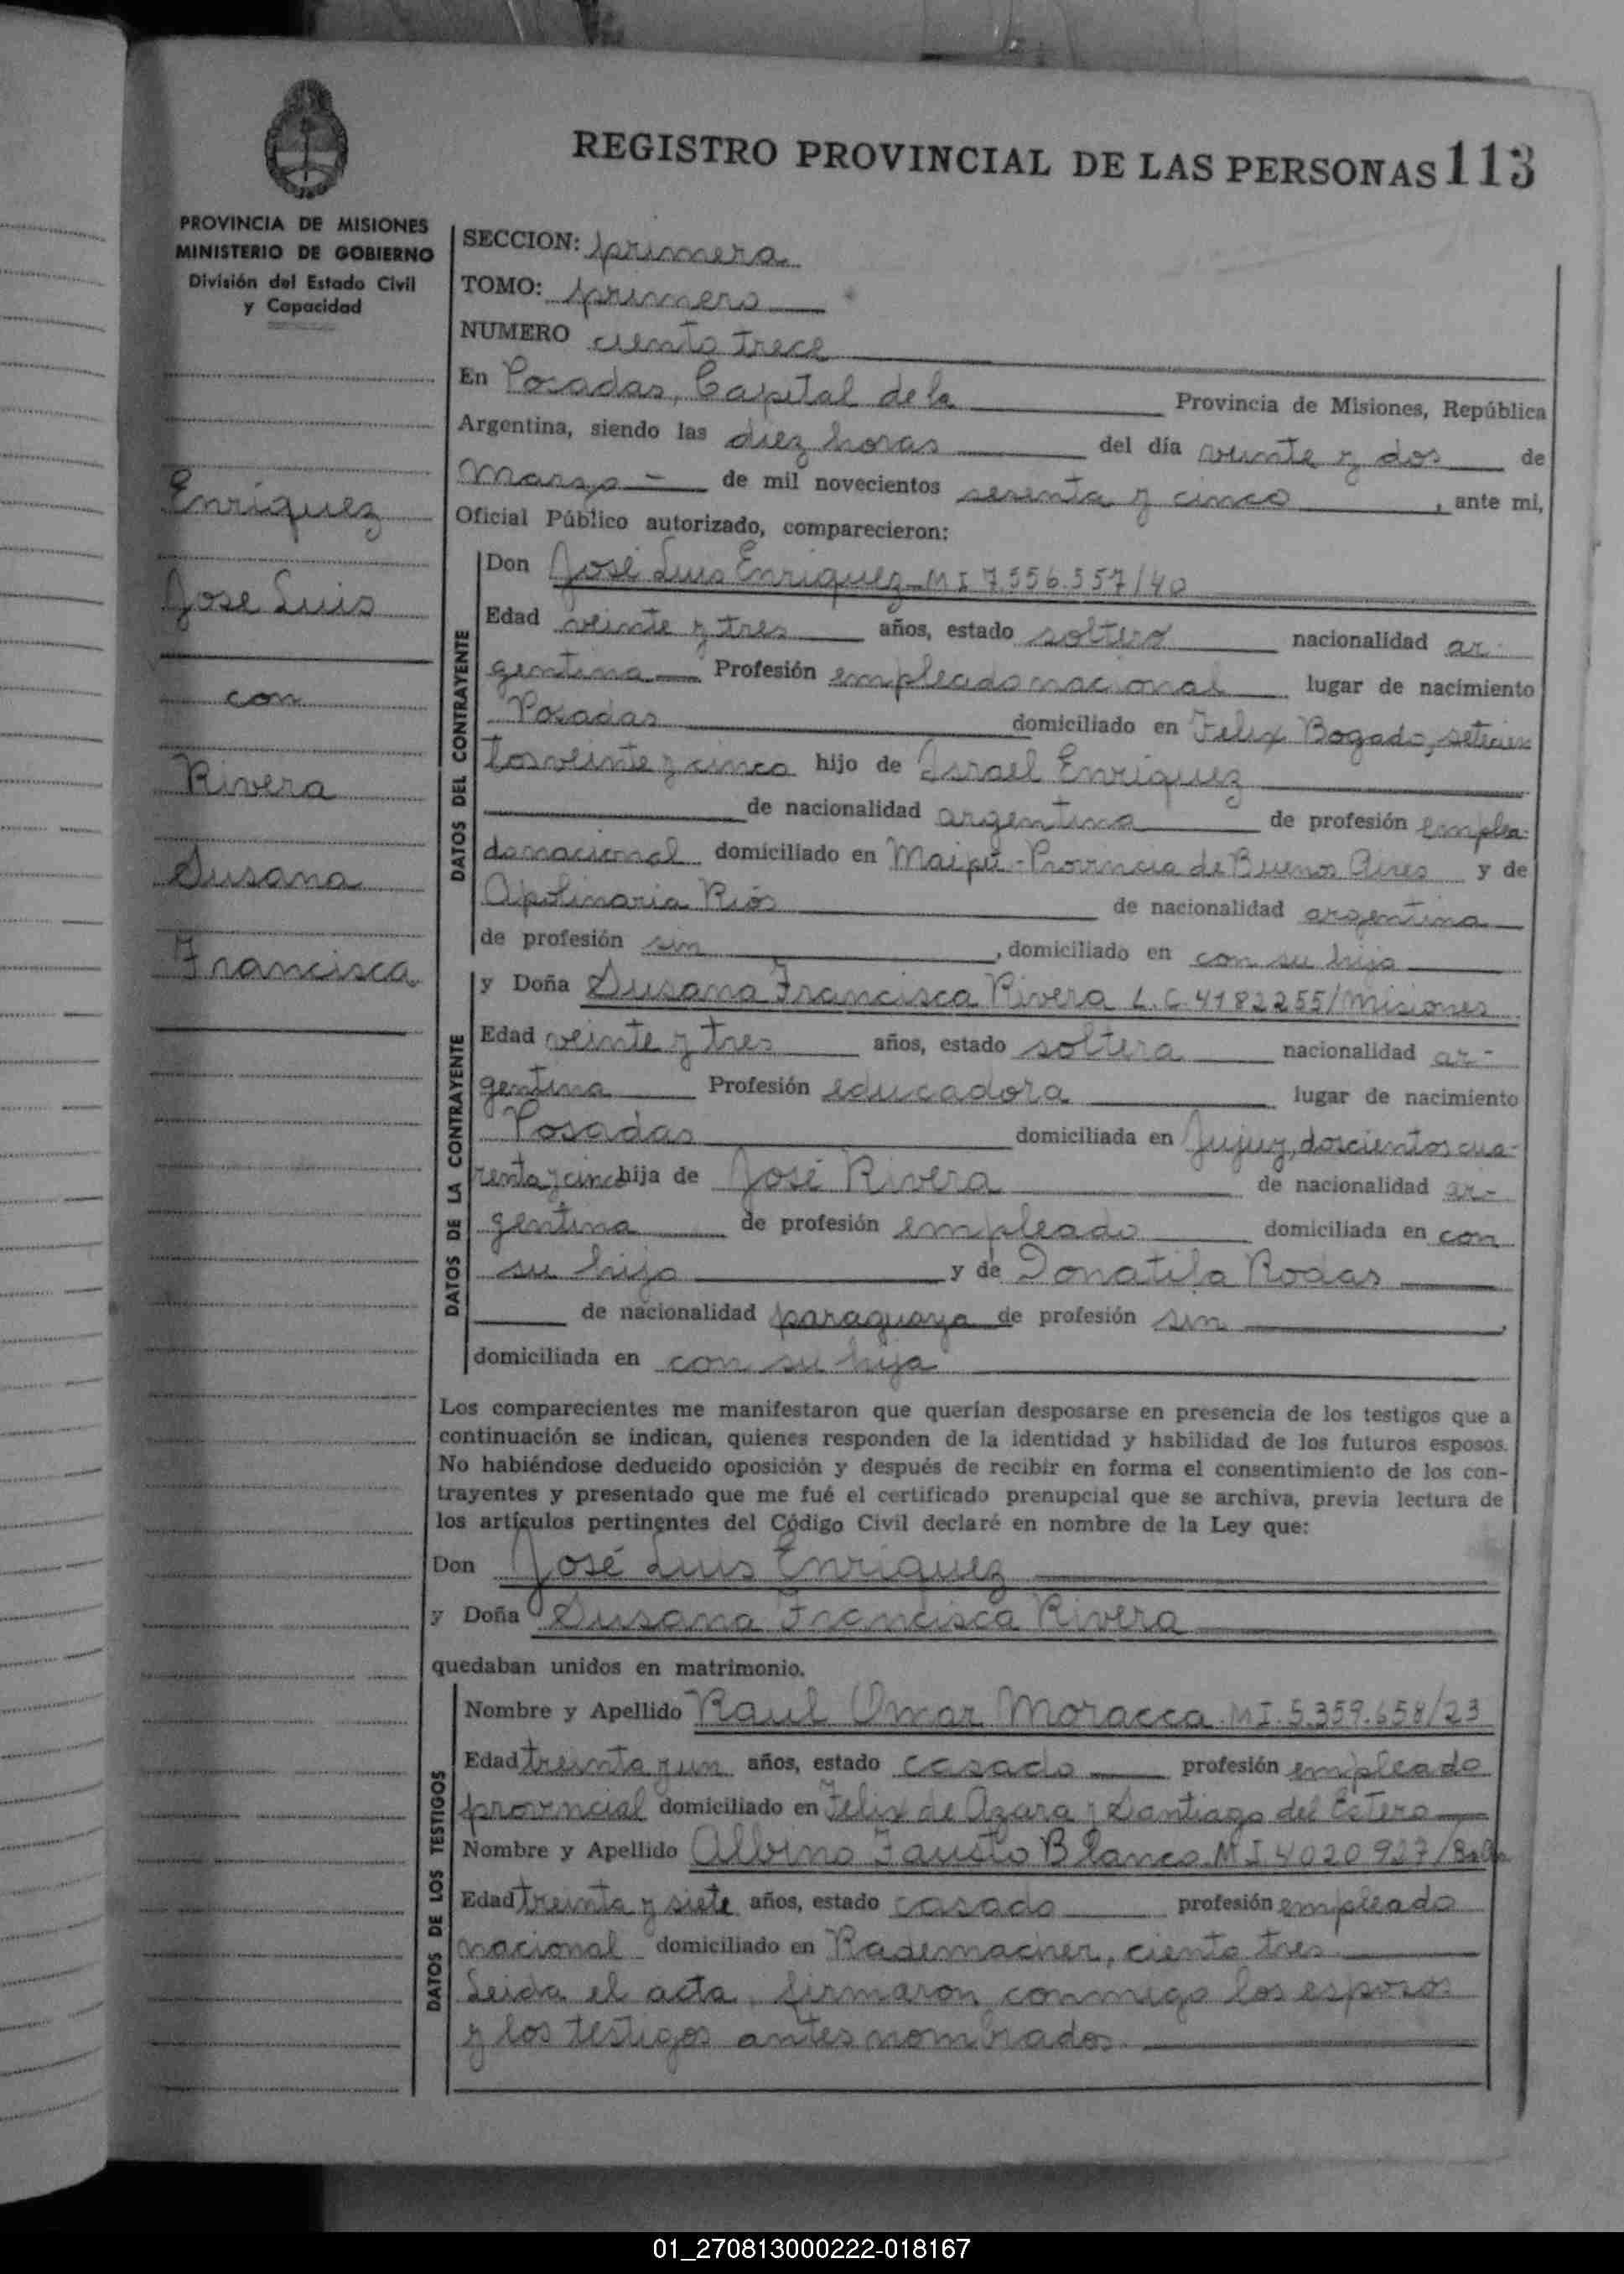 REGISTRO PROVINCIAL DE LAS PERSONAS 113
PROVINCIA DE MISIONES
MINISTERIO DE GOBIERNO
División del Estado Civil
y Capacidad
Enriquez
Jose Luis
con
Rivera
Susana
Francisca
SECCION: primera
TOMO: primero
NUMERO ciento trece
En Posadas, Capital de la Provincia de Misiones, República
Argentina, siendo las diez horas del día veinte y dos de
Marzo de mil novecientos sesenta y cinco, ante mi,
Oficial Público autorizado, comparecieron:
DATOS DEL CONTRAYENTE
Don José Luis Enriquez MI 7.556.557/40
Edad veinte y tres años, estado soltero nacionalidad ar-
gentina Profesión empleado nacional lugar de nacimiento
Posadas domiciliado en Felix Bogado, setecien
tos veinte y cinco hijo de Israel Enriquez
de nacionalidad argentina de profesión emplea-
do nacional domiciliado en Maipú - Provincia de Buenos Aires y de
Apolinaria Riós de nacionalidad argentina
de profesión sin, domiciliado en con su hijo
DATOS DE LA CONTRAYENTE
y Doña Susana Francisca Rivera L.C. 4182255/Misiones
Edad veinte y tres años, estado soltera nacionalidad ar-
gentina Profesión educadora lugar de nacimiento
Posadas domiciliada en Jujuy, doscientos cua-
renta y cinco hija de José Rivera de nacionalidad ar-
gentina de profesión empleado domiciliada en con
su hija y de Donatila Rodas
de nacionalidad paraguaya de profesión sin,
domiciliada en con su hija
Los comparecientes me manifestaron que querían desposarse en presencia de los testigos que a
continuación se indican, quienes responden de la identidad y habilidad de los futuros esposos.
No habiéndose deducido oposición y después de recibir en forma el consentimiento de los con-
trayentes y presentado que me fué el certificado prenupcial que se archiva, previa lectura de
los artículos pertinentes del Código Civil declaré en nombre de la Ley que:
Don José Luis Enriquez
y Doña Susana Francisca Rivera
quedaban unidos en matrimonio.
DATOS DE LOS TESTIGOS
Nombre y Apellido Raul Omar Moracca. MI. 5.359.658/23
Edad treinta y un años, estado casado profesión empleado
provincial domiciliado en Felix de Azara y Santiago del Estero
Nombre y Apellido Albino Fausto Blanco MI 4020927/
Edad treinta y siete años, estado casado profesión empleado
nacional domiciliado en Rademacher, ciento tres
Leida el acta, firmaron conmigo los esposos
y los testigos antes nombrados.
01_270813000222-018167